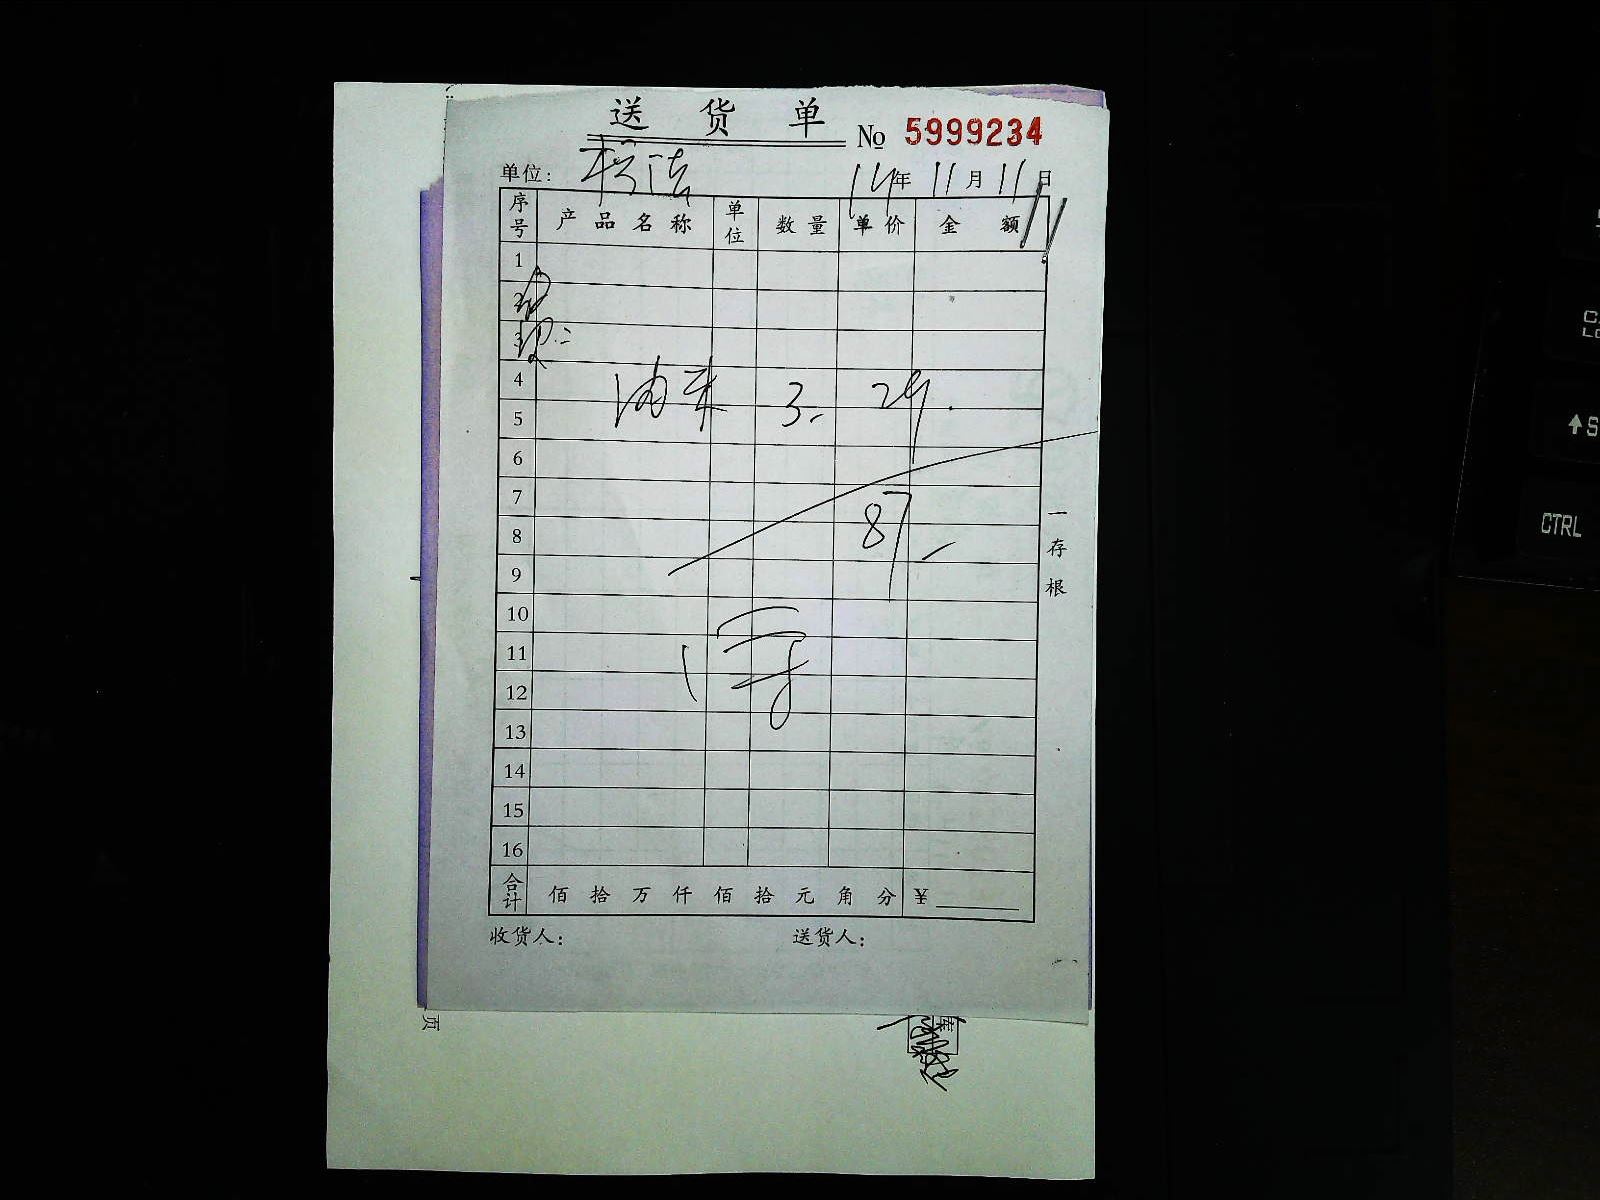 送 货 单
No 5999234
单位: 14年 11月 11日
序号 产品名称 单位 数量 单价 金额
1
2
3
4
油 3. 29.
5
6
7
87
8
9
10
11
12
13
14
15
16
合计 佰 拾 万 仟 佰 拾 元 角 分 ¥
收货人: 送货人:
一存根
页
CTRL